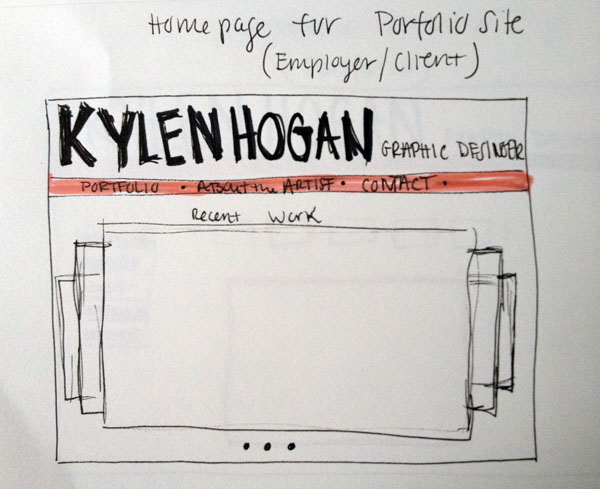 Homepage for Portfolio Site
(Employer/Client)
KYLENHOGAN GRAPHIC DESINGER
PORTFOLIO • About the ARTIST • CONTACT •
Recent Work